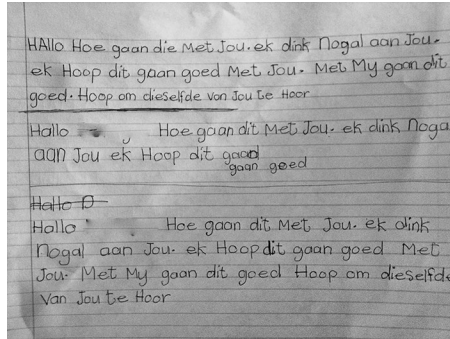 HAllo Hoe gaan die Met Jou. ek dink Nogal aan Jou.
ek Hoop dit gaan goed Met Jou. Met My gaan dit
goed. Hoop om dieselfde van Jou te Hoor
Hallo Hoe gaan dit Met Jou. ek dink Noga
aan Jou ek Hoop dit gaan
gaan goed
Hallo D
Hallo Hoe gaan dit Met Jou. ek dink
Nogal aan Jou. ek Hoop dit gaan goed Met
Jou. Met My gaan dit goed Hoop om dieselfde
van Jou te Hoor